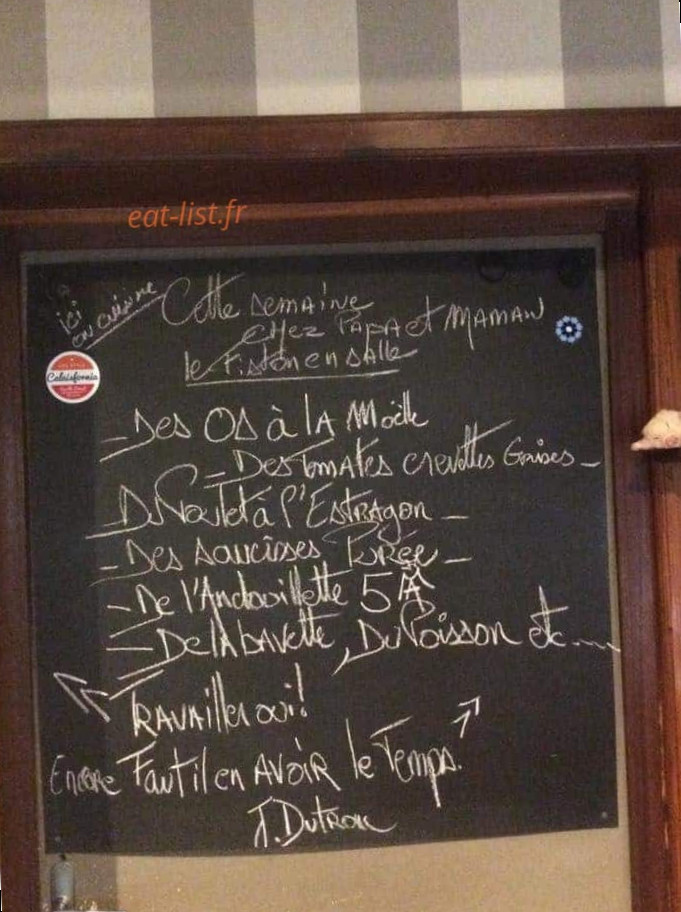 eat-list.fr
ici
en cuisine
Cette semaine
chez Papa et Maman
le Fiston en salle
Calaisfornia
- Des Os à la Moëlle
- Des tomates crevettes Grises -
- Du Poulet à l'Estragon -
- Des saucisses Purée -
- De l'Andouillette 5 A
- De la bavette, Du Poisson etc....
Travailler oui!
Encore Faut il en Avoir le Temps.
J. Dutronc